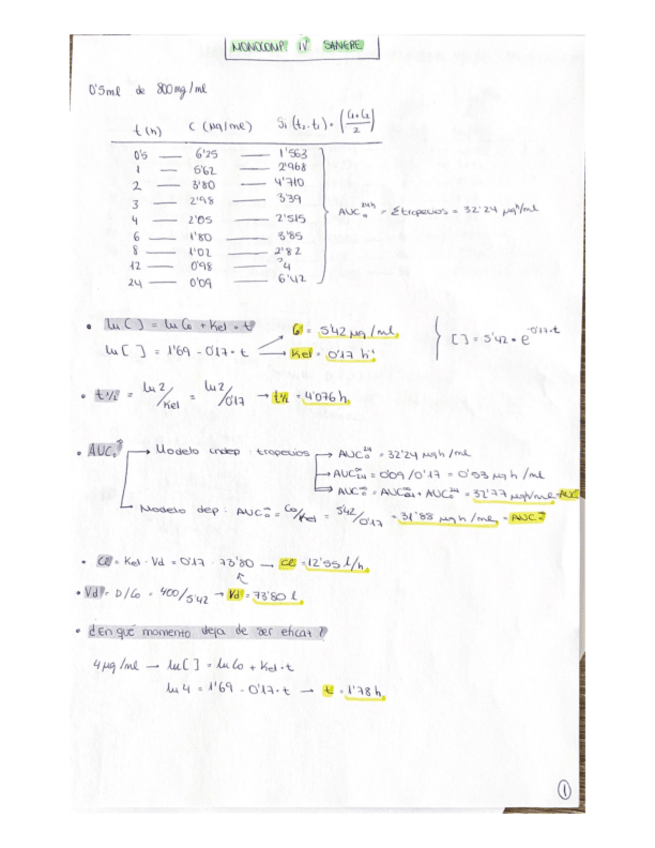 MONOCOMP. IV SANGRE
0'5ml de 800mg/ml
t(h) C (µg/ml) Si (t₂-t₁) · (C₁+C₂/2)
0'5 — 6'25 — 1'563
1 — 5'62 — 2'968
2 — 3'80 — 4'710
3 — 2'98 — 3'39
4 — 2'05 — 2'515
6 — 1'80 — 3'85
8 — 1'02 — 2'82
12 — 0'98 — 4
24 — 0'09 — 6'42
AUC₀²⁴ʰ = Σtrapecios = 32'24 µgh/ml
• ln[ ] = lnC₀ + Kel · t
ln[ ] = 1'69 - 0'17 · t
C₀ = 5'42 µg/ml
Kel = 0'17 h⁻¹
[ ] = 5'42 · e^-0'17·t
• t½ = ln2/Kel = ln2/0'17 → t½ = 4'076 h
• AUC₀^∞ → Modelo indep: trapecios → AUC₀²⁴ = 32'24 µg h/ml
→ AUC₂₄^∞ = 0'09/0'17 = 0'53 µg h/ml
→ AUC₀^∞ = AUC₂₄^∞ + AUC₀²⁴ = 32'77 µgh/ml = AUC
→ Modelo dep: AUC₀^∞ = C₀/Kel = 5'42/0'17 = 31'88 µg h/ml = AUC₀^∞
• Cl = Kel · Vd = 0'17 · 73'80 → Cl = 12'55 l/h
• Vd = D/C₀ = 400/5'42 → Vd = 73'80 l
• ¿En qué momento deja de ser eficaz?
4 µg/ml → ln[ ] = lnC₀ + Kel · t
ln 4 = 1'69 - 0'17 · t → t = 1'78 h
1